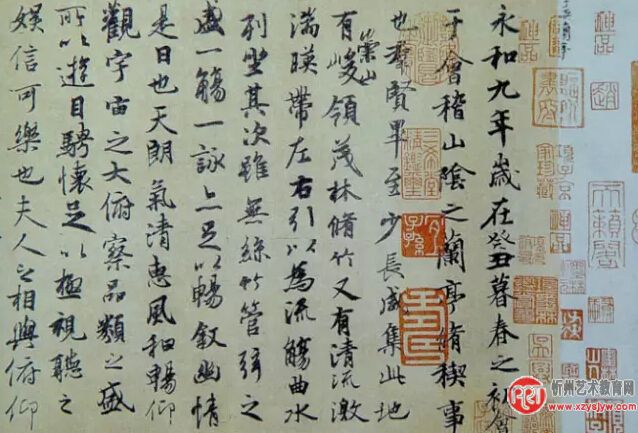 神品
趙
天籟閣
永和九年歲在癸丑暮春之初會
于會稽山陰之蘭亭脩稧事
也羣賢畢至少長咸集此地
有崇山峻領茂林脩竹又有清流激
湍暎帶左右引以為流觴曲水
列坐其次雖無絲竹管弦之
盛一觴一詠亦足以暢敘幽情
是日也天朗氣清惠風和暢仰
觀宇宙之大俯察品類之盛
所以遊目騁懷足以極視聽之
娛信可樂也夫人之相與俯仰
三希堂精鑑璽
宜子孫
忻州艺术教育网
www.xzysjyw.com